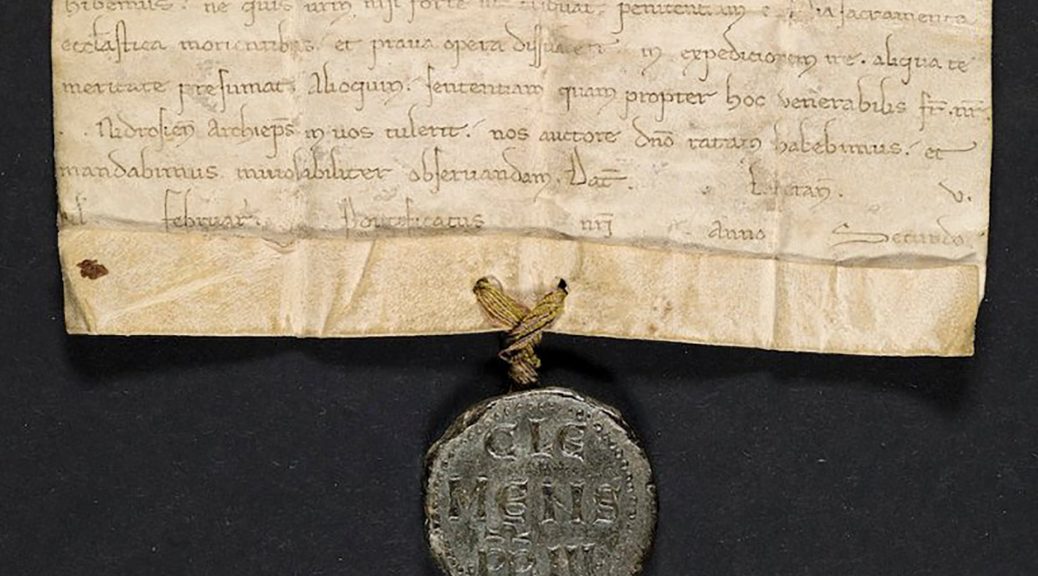 hibemus. ne quis urm nisi forte penitentiam sacramenta
ecclastica morientibus. et prava opera in expedicionem nre. aliqua te
meritate presumat. Alioquin. sententiam quam propter hoc venerabilis fr. nr.
Nidrosien Archieps in vos tulerit. nos auctore dno ratam habebimus. et
mandabimus inviolabiliter observandam. Dat. Lateran. v.
kl februar. Pontificatus nri Anno Secundo
CLE
MENS
PP III